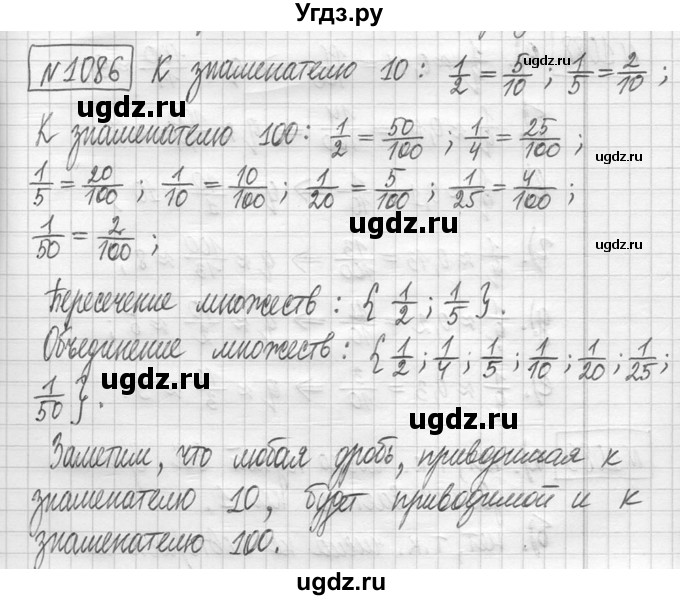 Угдз.ру
№1086 К знаменателю 10: 1/2 = 5/10; 1/5 = 2/10;
ugdz.ru ugdz.ru
К знаменателю 100: 1/2 = 50/100; 1/4 = 25/100;
ugdz.ru
1/5 = 20/100; 1/10 = 10/100; 1/20 = 5/100; 1/25 = 4/100;
ugdz.ru
1/50 = 2/100;
Пересечение множеств: {1/2; 1/5}.
ugdz.ru
Объединение множеств: {1/2; 1/4; 1/5; 1/10; 1/20; 1/25;
ugdz.ru
1/50}.
ugdz.ru
Заметим, что любая дробь, приводимая к
знаменателю 10, будет приводимой и к
ugdz.ru ugdz.ru
знаменателю 100.
ugdz.ru